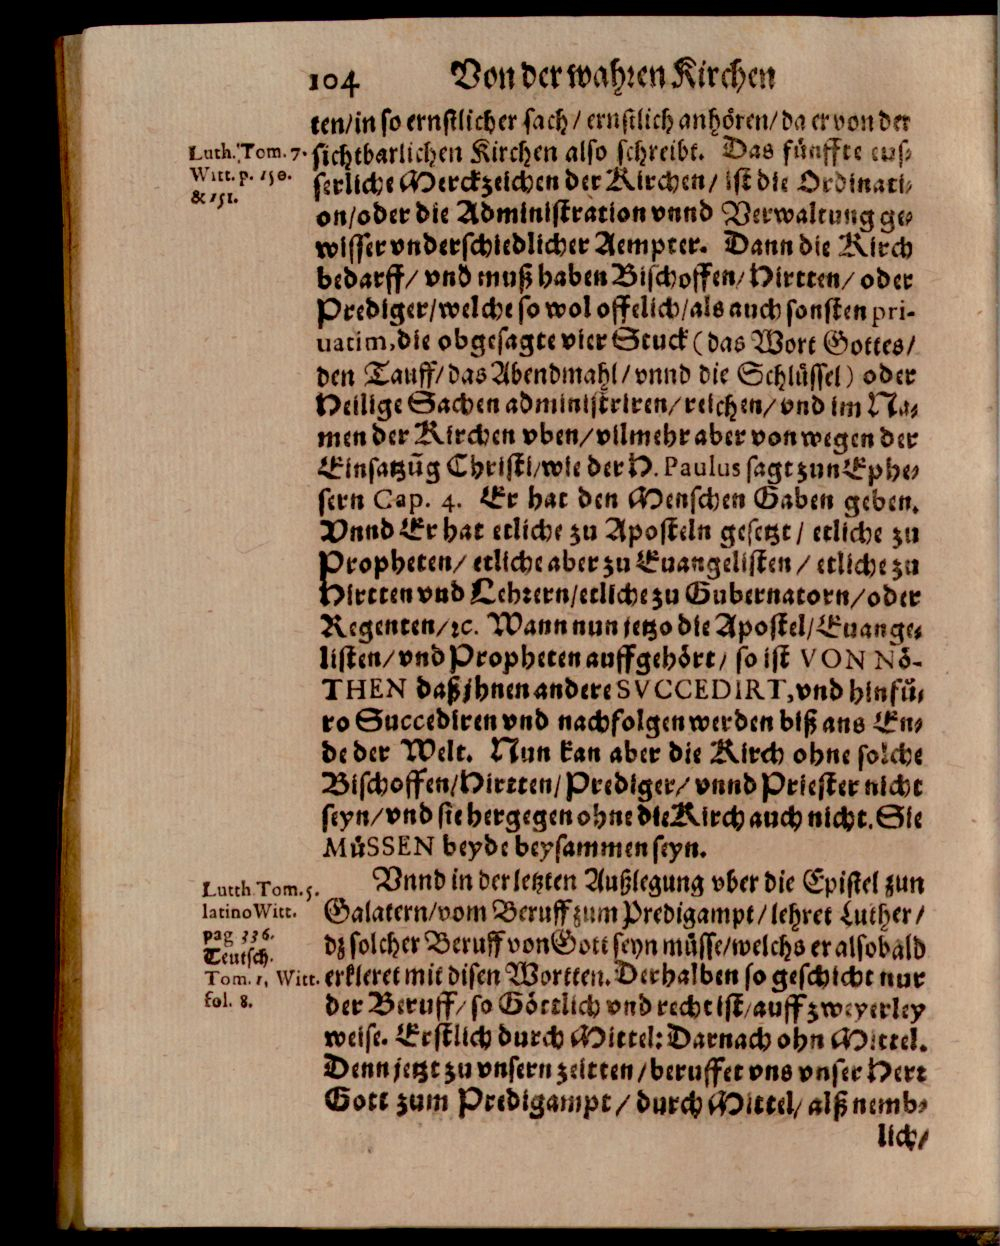 104 Von der wahren Kirchen
ten/in so ernstlicher sach/ ernstlich anhören/da er von der
Luth. Tom. 7.
Witt. p. 150.
& 151.
sichtbarlichen Kirchen also schreibt. Das fünffte eus-
serliche Merckzeichen der Kirchen/ ist die Ordinati-
on/oder die Administration vnnd Verwaltung ge-
wisser vnderschiedlicher Aempter. Dann die Kirch
bedarff/ vnd muß haben Bischoffen/Hirtten/ oder
Prediger/welche so wol offelich/als auch sonsten pri-
uatim,die obgesagte vier Stuck (das Wort Gottes/
den Tauff/das Abendmahl/vnnd die Schlüssel) oder
Heilige Sachen administriren/reichen/vnd im Na-
men der Kirchen vben/vilmehr aber von wegen der
Einsatzūg Christi/wie der H. Paulus sagt zun Ephe-
sern Cap. 4. Er hat den Menschen Gaben geben.
Vnnd Er hat etliche zu Aposteln gesetzt/ etliche zu
Propheten/ etliche aber zu Euangelisten/ etliche zu
Hirtten vnd Lehrern/etliche zu Gubernatorn/oder
Regenten/ꝛc. Wann nun jetzo die Apostel/Euange-
listen/vnd Propheten auffgehört/ so ist VON Nö-
THEN daß jhnen andere SVCCEDIRT,vnd hinfü-
ro Succediren vnd nachfolgen werden biß ans En-
de der Welt. Nun kan aber die Kirch ohne solche
Bischoffen/Hirtten/Prediger/ vnnd Priester nicht
seyn/vnd sie hergegen ohne die Kirch auch nicht. Sie
MüSSEN beyde beysammen seyn.
Lutth Tom. 5.
latino Witt.
pag 336.
Teutsch.
Tom. 1, Witt.
fol. 8.
Vnnd in der letzten Außlegung vber die Epistel zun
Galatern/vom Beruff zum Predigampt/lehret Luther/
dz solcher Beruff von Gott seyn müsse/welchs er alsobald
erkleret mit disen Wortten. Derhalben so geschicht nur
der Beruff/ so Göttlich vnd recht ist/auff zweyerley
weise. Erstlich durch Mittel: Darnach ohn Mittel.
Denn jetzt zu vnsern zeitten/beruffet vns vnser Herr
Gott zum Predigampt/ durch Mittel/ alß nemb-
lich/